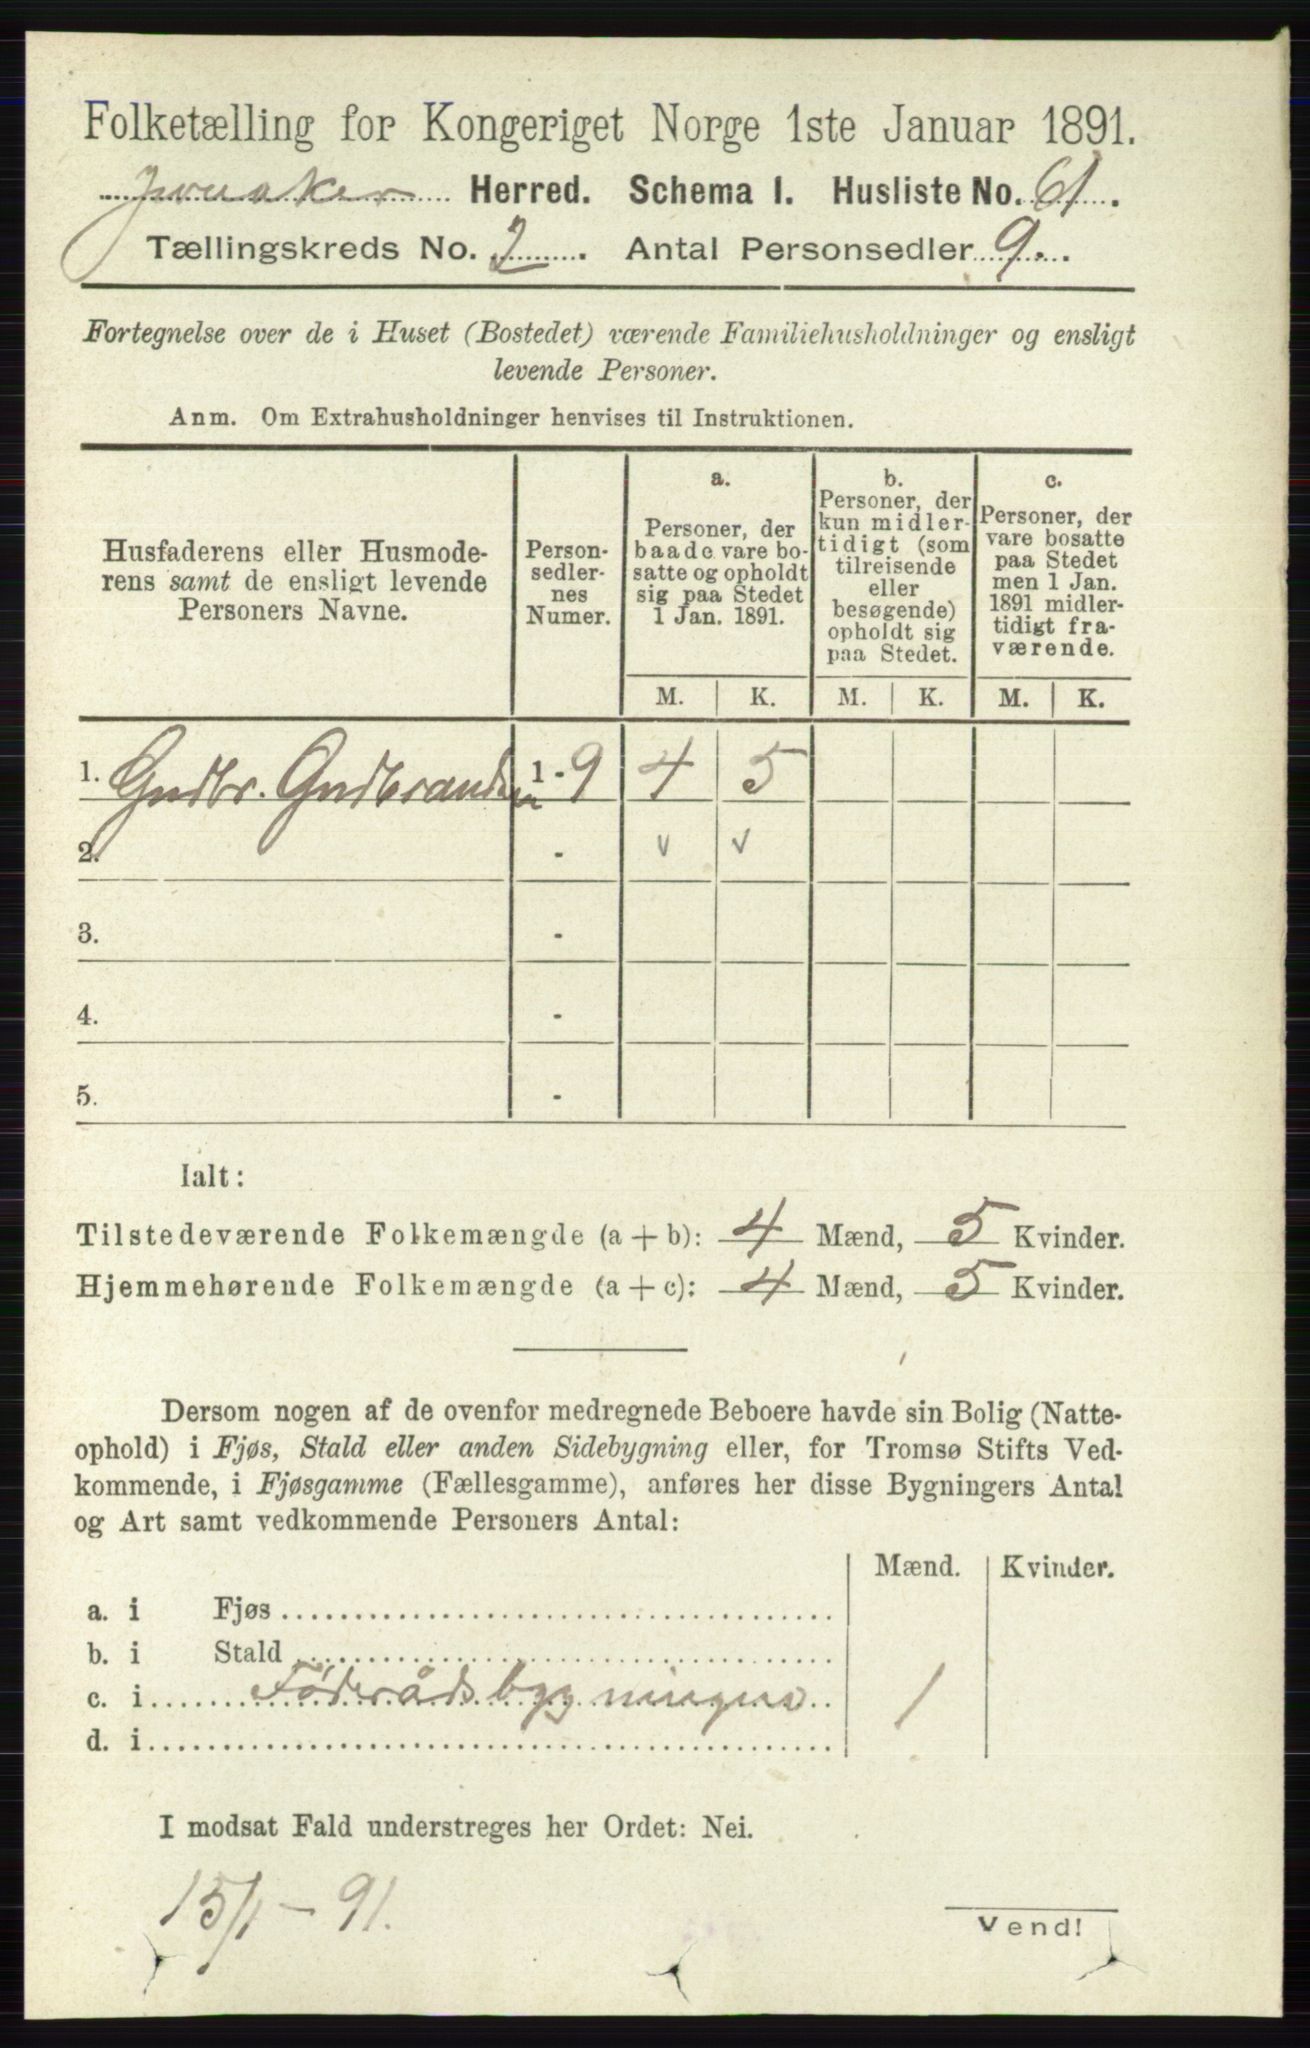 Folketælling for Kongeriget Norge 1ste Januar 1891.
Jevnaker Herred. Schema I. Husliste No. 61.
Tællingskreds No. 2. Antal Personsedler 9.
Fortegnelse over de i Huset (Bostedet) værende Familiehusholdninger og ensligt
levende Personer.
Anm. Om Extrahusholdninger henvises til Instruktionen.
Husfaderens eller Husmode-
rens samt de ensligt levende
Personers Navne.
Person-
sedler-
nes
Numer.
a.
Personer, der
baade vare bo-
satte og opholdt
sig paa Stedet
1 Jan. 1891.
b.
Personer, der
kun midler-
tidigt (som
tilreisende
eller
besøgende)
opholdt sig
paa Stedet.
c.
Personer, der
vare bosatte
paa Stedet
men 1 Jan.
1891 midler-
tidigt fra-
værende.
M. K. M. K. M. K.
1. Gudbr. Gudbrandsen 1 - 9 4 5
2. - v v
3. -
4. -
5. -
Ialt:
Tilstedeværende Folkemængde (a + b): 4 Mænd, 5 Kvinder.
Hjemmehørende Folkemængde (a + c): 4 Mænd, 5 Kvinder.
Dersom nogen af de ovenfor medregnede Beboere havde sin Bolig (Natte-
ophold) i Fjøs, Stald eller anden Sidebygning eller, for Tromsø Stifts Ved-
kommende, i Fjøsgamme (Fællesgamme), anføres her disse Bygningers Antal
og Art samt vedkommende Personers Antal:
Mænd. Kvinder.
a. i Fjøs
b. i Stald
c. i Föderådsbygningen 1
d. i
I modsat Fald understreges her Ordet: Nei.
15/1 - 91.
Vend!